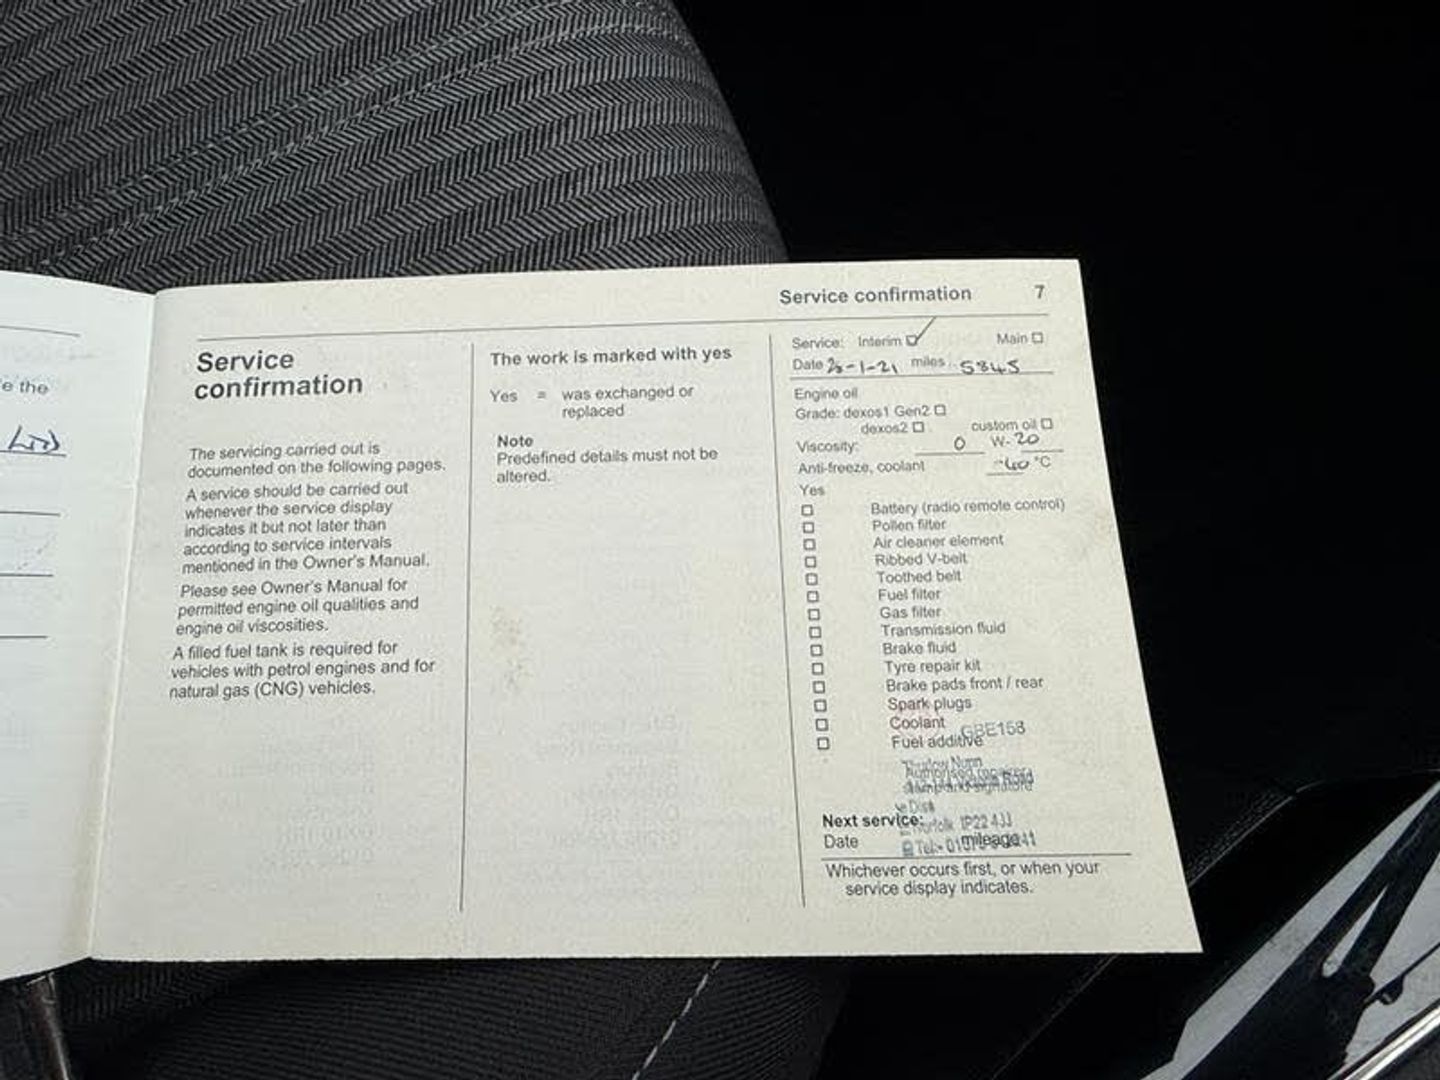 e the
Service confirmation 7
Service
confirmation
The servicing carried out is
documented on the following pages.
A service should be carried out
whenever the service display
indicates it but not later than
according to service intervals
mentioned in the Owner's Manual.
Please see Owner's Manual for
permitted engine oil qualities and
engine oil viscosities.
A filled fuel tank is required for
vehicles with petrol engines and for
natural gas (CNG) vehicles.
The work is marked with yes
Yes = was exchanged or
replaced
Note
Predefined details must not be
altered.
Service: Interim Main
Date -1-21 miles 5845
Engine oil
Grade: dexos1 Gen2
dexos2 custom oil
Viscosity: 0 W-20
Anti-freeze, coolant -40 °C
Yes
Battery (radio remote control)
Pollen filter
Air cleaner element
Ribbed V-belt
Toothed belt
Fuel filter
Gas filter
Transmission fluid
Brake fluid
Tyre repair kit
Brake pads front / rear
Spark plugs
Coolant
GBE158
Fuel additive
Nunn
Authorised repairer
Road
Diss
Next service: Norfolk IP22 4JJ
Date Tel:- mileage
Whichever occurs first, or when your
service display indicates.